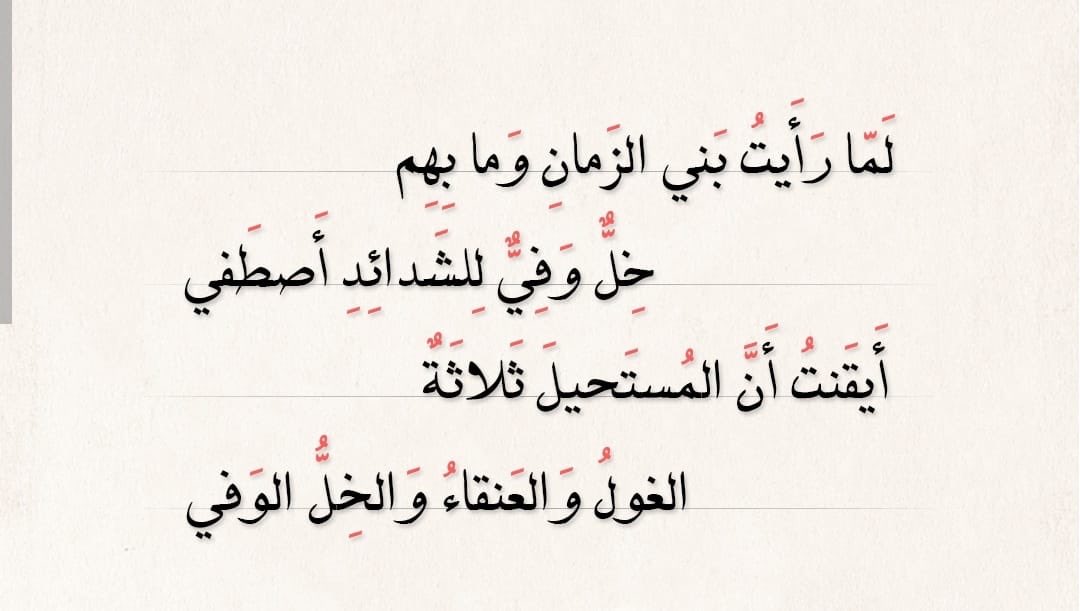 لَمّا رَأَيتُ بَني الزَمانِ وَما بِهِم
خِلٌّ وَفِيٌّ لِلشَدائِدِ أَصطَفي
أَيقَنتُ أَنَّ المُستَحيلَ ثَلاثَةٌ
الغولُ وَالعَنقاءُ وَالخِلُّ الوَفي